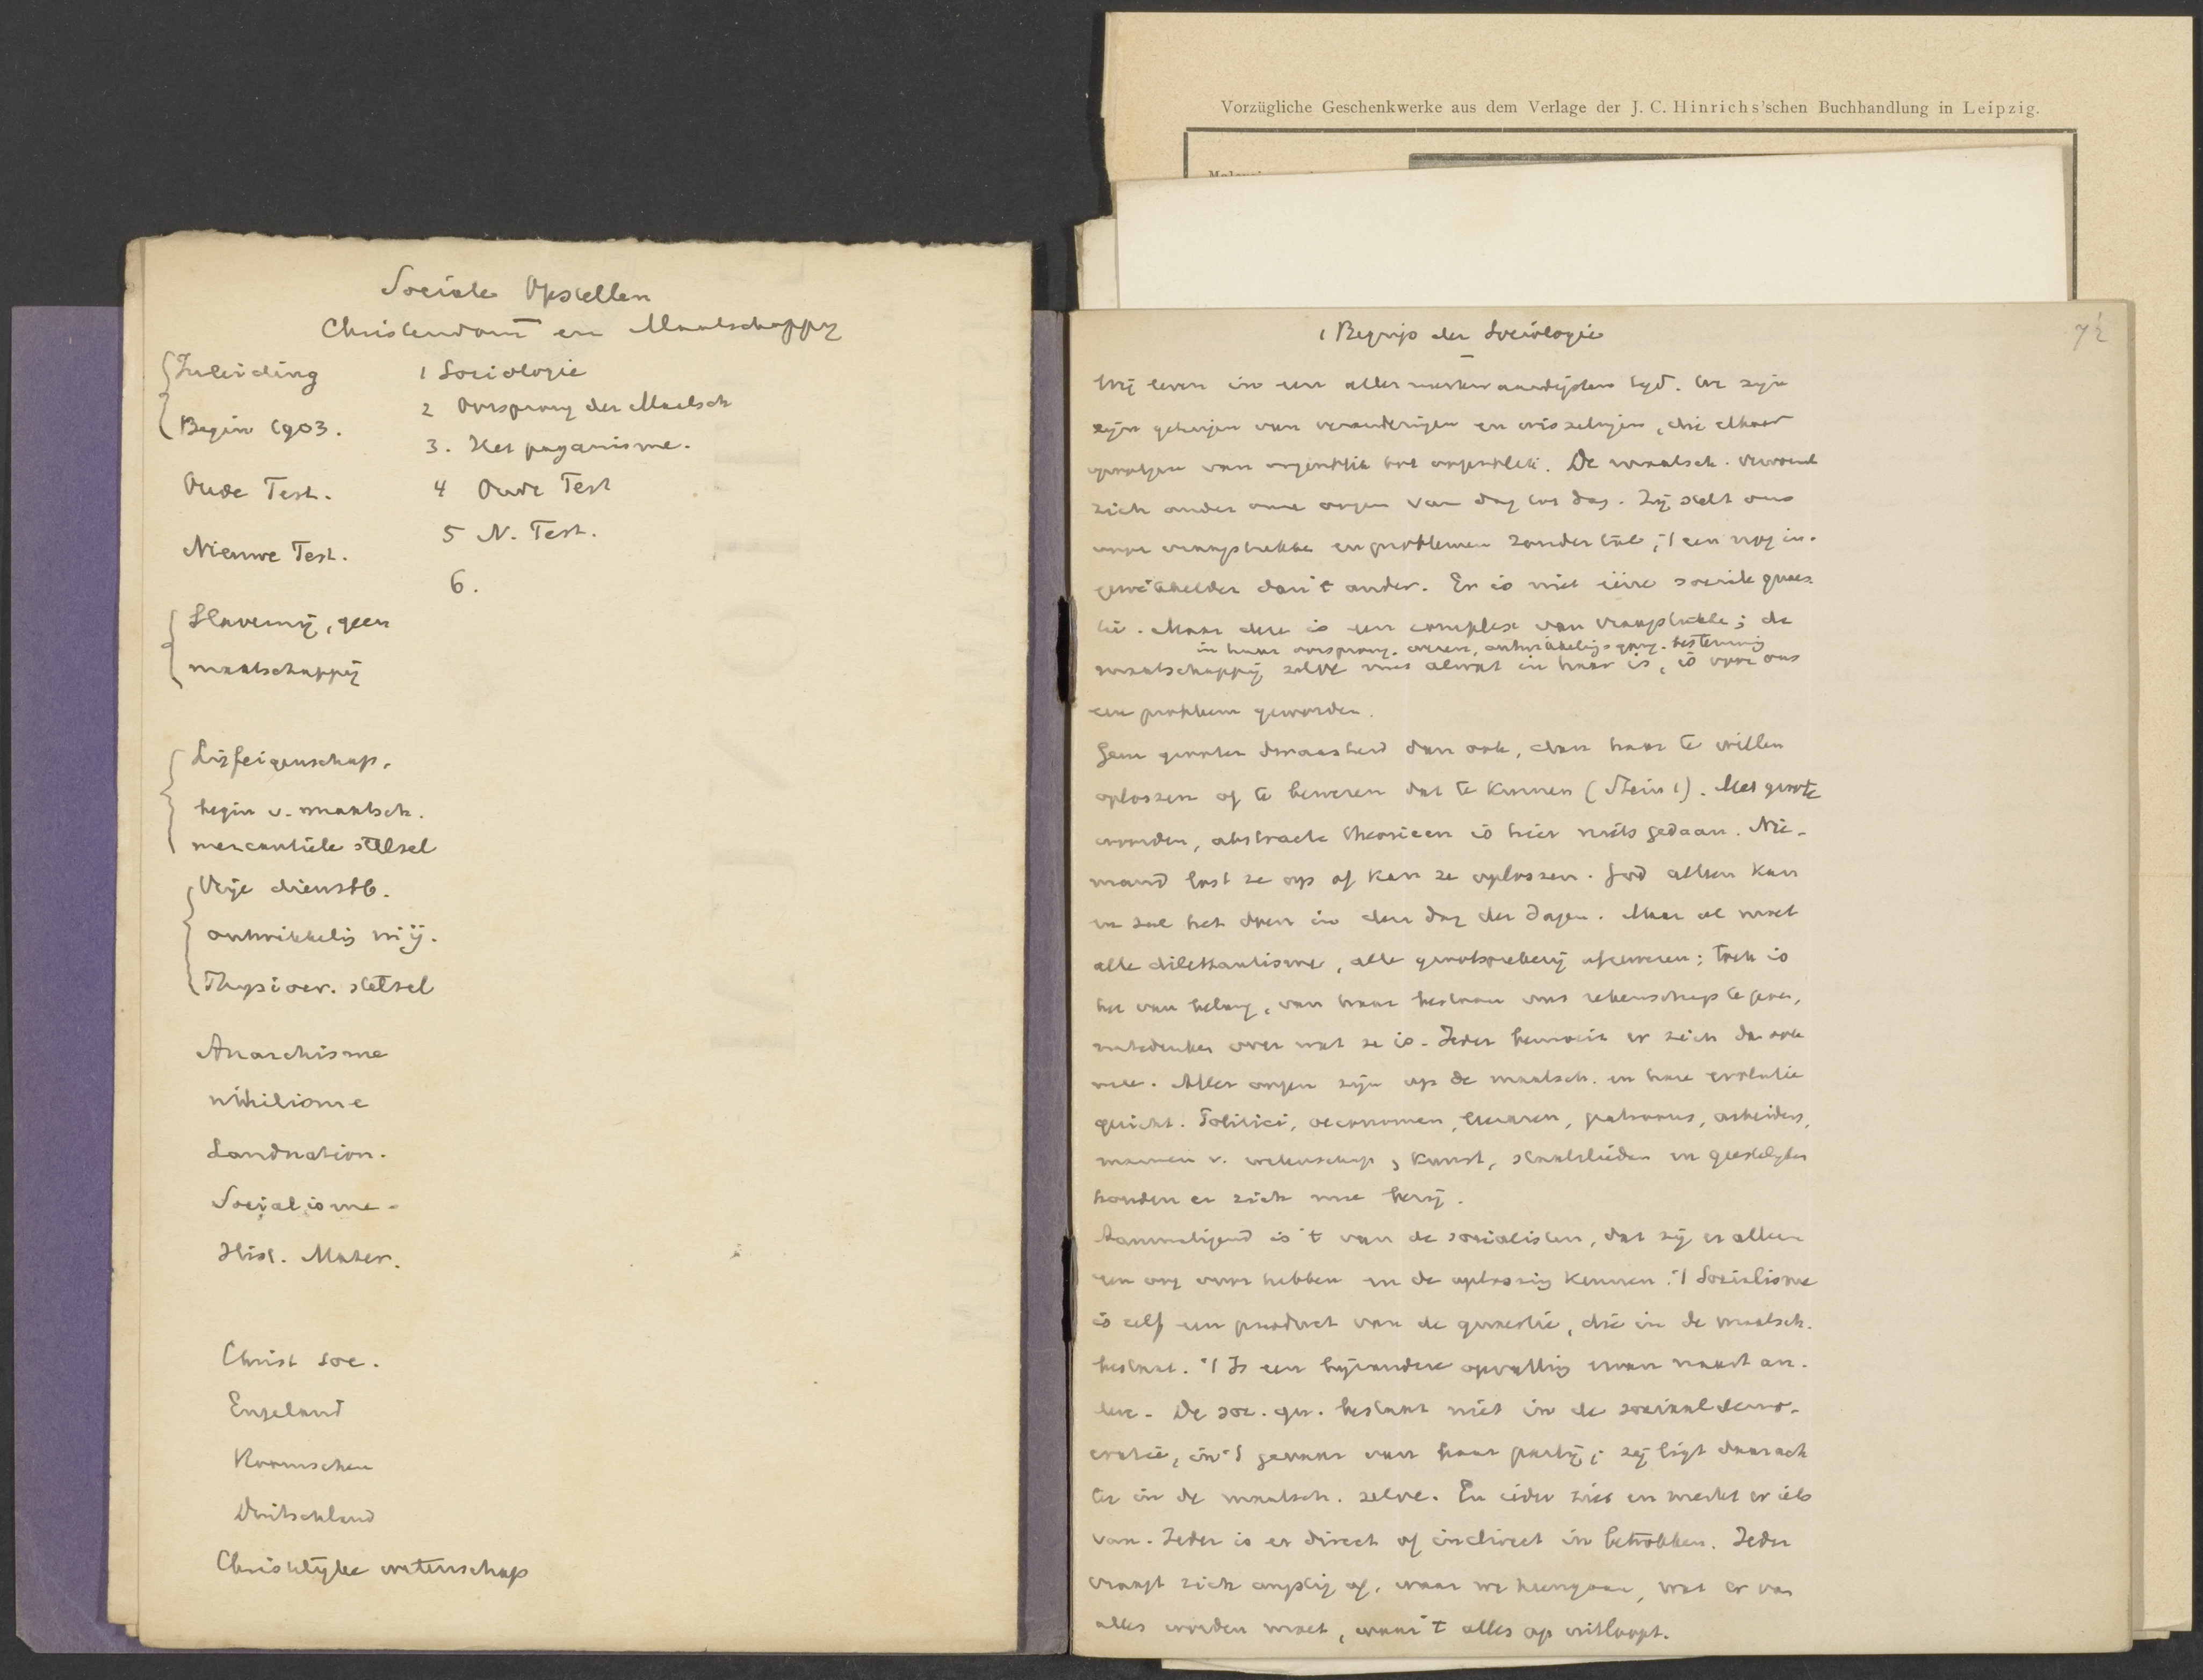 Sociale Opstellen
Christendom en Maatschappy
Inleiding
Begin 1903.
Oude Test.
Nieuwe Test.
Slavernij, geen
maatschappij
Lijfeigenschap,
begin v. maatsch.
mercantiele stelsel
Vrije dienstb.
ontwikkelig mij.
Physiocr. stelsel
Anarchisme
nihilisme
Landnation.
Socialisme
Hist. Mater.
Christ soc.
Engeland
Roomschen
Duitschland
Christelijke wetenschap
1 Sociologie
2 Oorsprong der Maatsch
3. Het paganisme.
4 Oude Test
5 N. Test.
6.
Vorzügliche Geschenkwerke aus dem Verlage der J. C. Hinrichs'schen Buchhandlung in Leipzig.
1 Begrip der Sociologie
Wij leven in een aller merkwaardigsten tijd. We zijn
getuigen van veranderingen en wisselingen, die elkaar
van oogenblik tot oogenblik. De maatsch. vervormt
zich onder onze oogen van dag tot dag. Zij stelt ons
voor vraagstukken en problemen zonder tal; 't een nog in-
gewikkelder dan 't ander. Er is niet ééne sociale quaes-
tie. Maar deze is een complex van vraagstukken; de
in haar oorsprong, wezen, ontwikkelings gang, bestemming
maatschappij zelve met alwat in haar is, is voor ons
een probleem geworden.
Geen grooter dwaasheid dan ook, dan haar te willen
oplossen of te beweren dat te kunnen (Stein 1). Met groote
woorden, abstracte theorieen is hier niets gedaan. Nie-
mand lost ze op of kan ze oplossen. God alleen kan
en zal het doen in den dag der dagen. Maar al moet
alle dilettantisme, alle grootspreekerij afgeweren; toch is
het van belang, van haar bestaan ons rekenschap te geven,
natedenken over wat ze is. Ieder bemoeit er zich dan ook
mee. Aller oogen zijn op de maatsch. en hare evolutie
gericht. Politici, oeconomen, leeraren, patroons, arbeiders,
mannen v. wetenschap, kunst, staatslieden en geestelijken
houden er zich mee bezig.
Aanmatigend is 't van de socialisten, dat zij er alleen
een oog voor hebben en de oplossing kennen. 't Socialisme
is zelf een product van de quaestie, die in de maatsch.
bestaat. 't Is een bijzondere opvatting ervan naast an-
dere. De soc. qu. bestaat niet in de sociaaldemo-
cratie, in 't gevaar van haar partij; zij ligt daarach
ter in de maatsch. zelve. En ieder ziet en merkt er iets
van. Ieder is er direct of indirect in betrokken. Ieder
vraagt zich angstig af, waar we heengaan, wat er van
alles worden moet, waar 't alles op uitloopt.